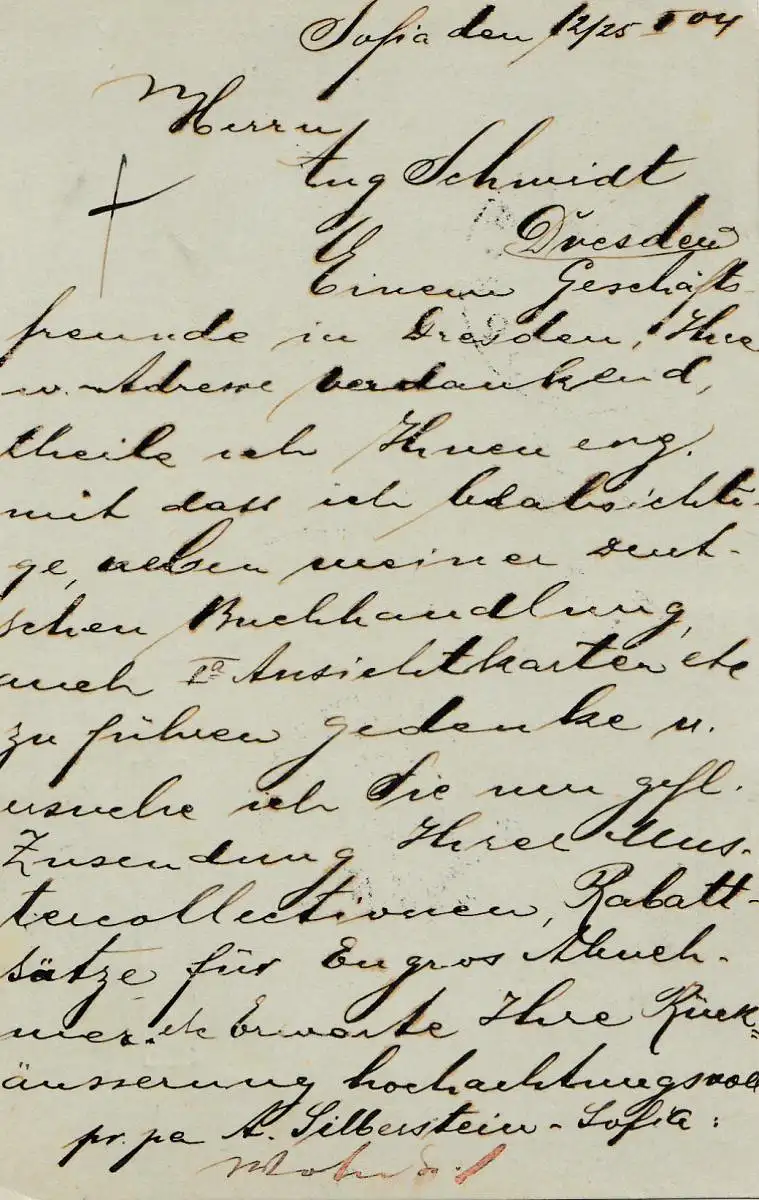 Sofia den 12/25 I 04
Herrn
Aug Schmidt
Dresden
Einem Geschäfts-
freunde in Dresden, Ihre
w. Adresse verdankend,
theile ich Ihnen erg.
mit dass ich beabsichti-
ge, neben meiner Deut-
schen Buchhandlung,
auch Ia Ansichtkarten etc
zu führen gedenke u.
ersuche ich Sie um gefl.
Zusendung Ihrer Mus-
tercollectionen, Rabatt-
sätze für Engros Abneh-
mer. etc Erwarte Ihre Rück=
äusserung hochachtungsvoll
pr. pa A. Silberstein - Sofia: